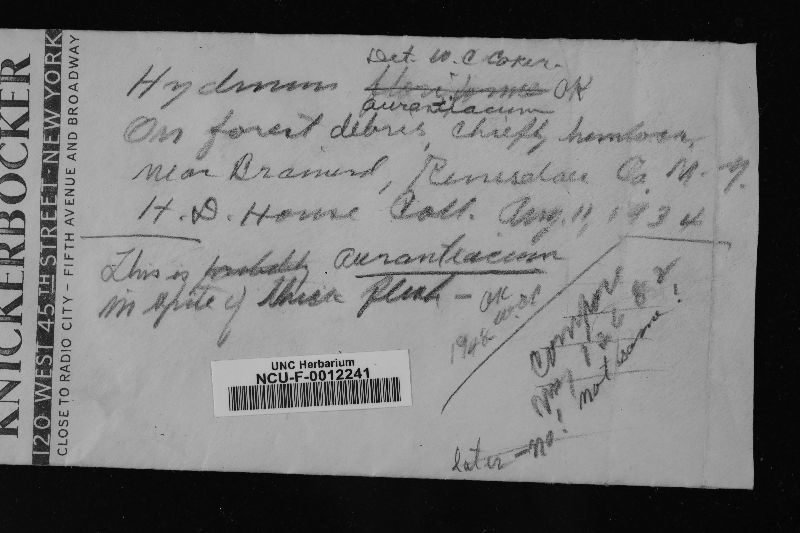 KNICKERBOCKER
120 WEST 45TH STREET NEW YORK
CLOSE TO RADIO CITY - FIFTH AVENUE AND BROADWAY
Det. W. C. Coker.
Hydnum floriforme OK
aurantiacum
On forest debris, chiefly hemlock,
near Brainerd, Rensselaer Co. N. Y.
H. D. House Coll. Aug. 11, 1934
This is probably aurantiacum
in spite of thick flesh - OK
1948
UNC Herbarium
NCU-F-0012241
compare
12682
not same!
later - no!